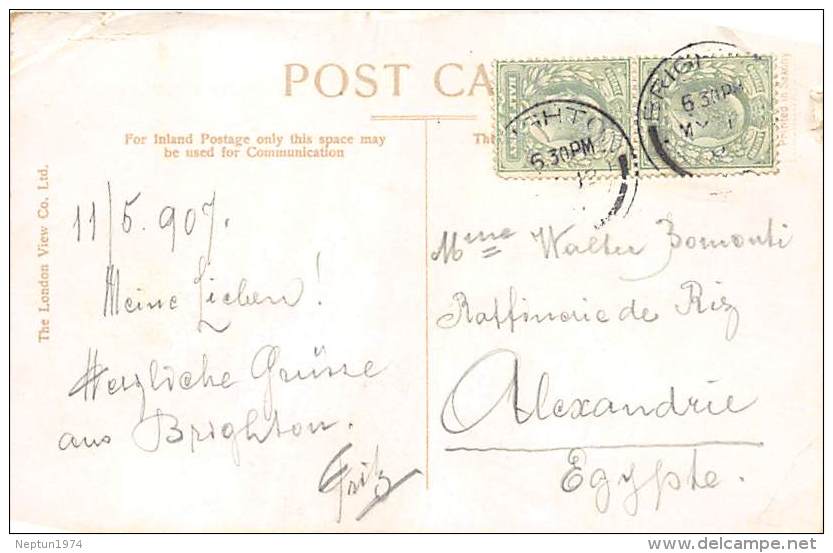 POST CA
For Inland Postage only this space may
be used for Communication
The London View Co. Ltd.
11/5.907.
Meine Lieben!
Herzliche Grüsse
aus Brighton.
Fritz
HTO
6.30PM
BRIGH
6 30PM
MY
Mme Walter Bomonti
Raffinerie de Riz
Alexandrie
Egypte.
Neptun1974
delcampe.net